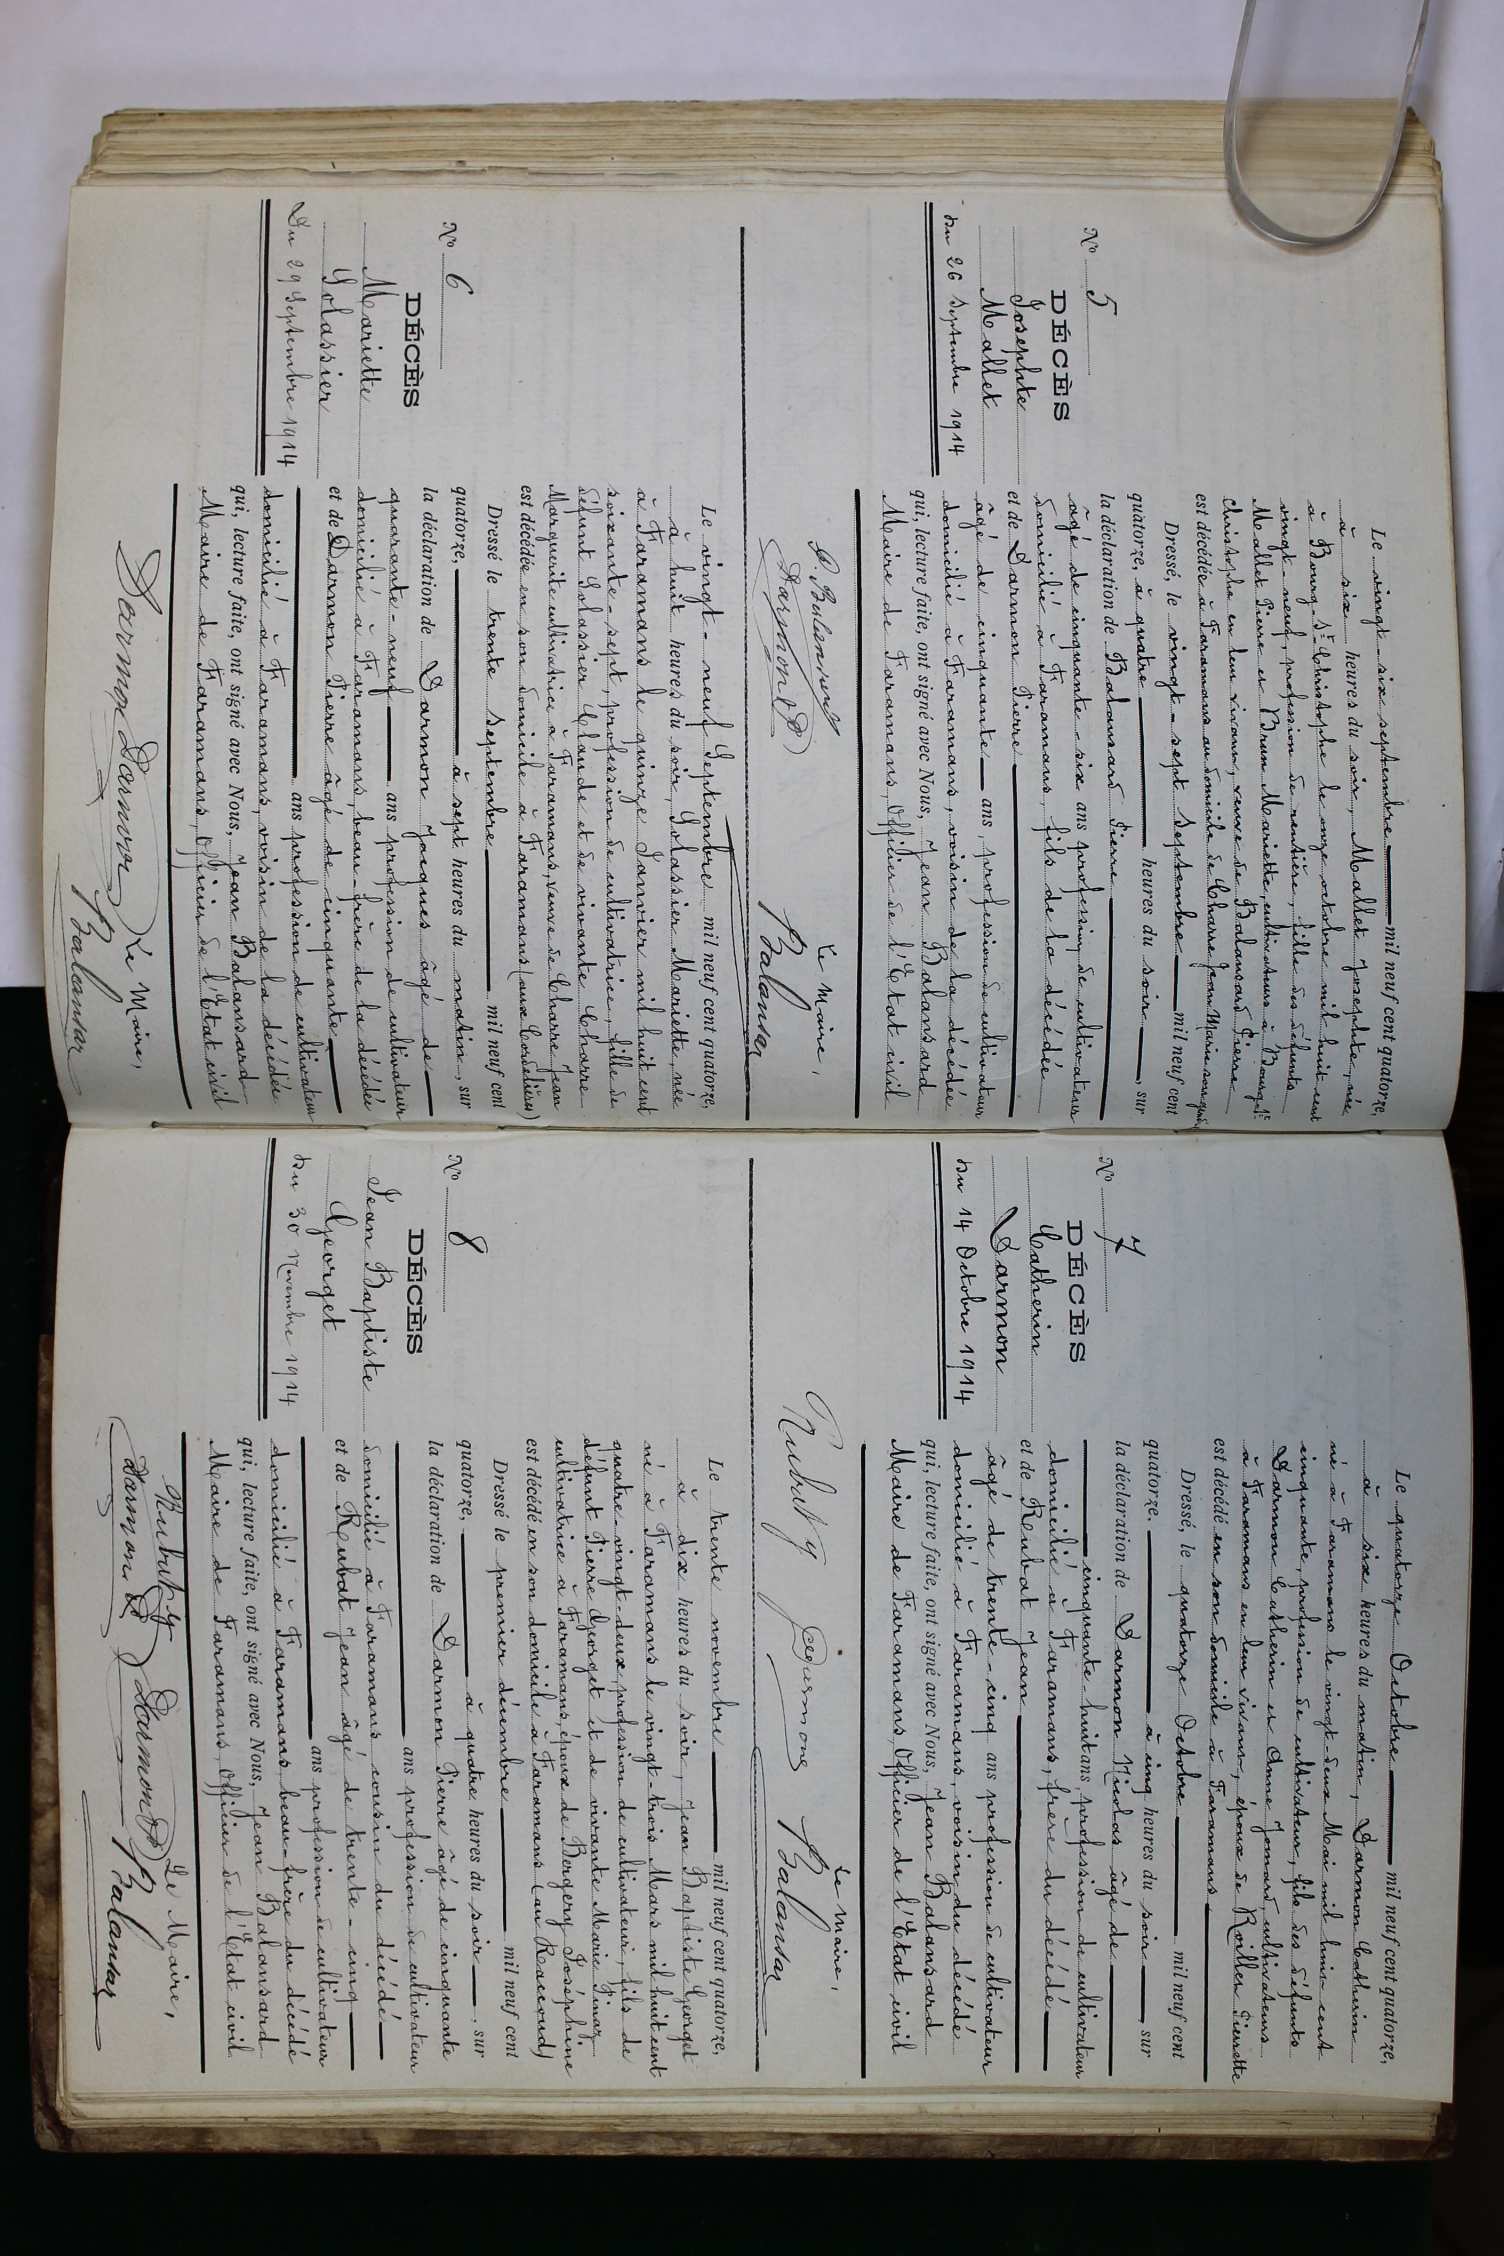 N° 5
DÉCÈS
Josephte
Mallet
Du 26 Septembre 1914
Le vingt-six septembre mil neuf cent quatorze,
à six heures du soir, Mallet Josephte, née
à Bourg-St-Christophe le onze octobre mil huit cent
vingt-neuf, profession de rentière, fille des défunts
Mallet Pierre et Brun Mariette, cultivateurs à Bourg-St-
Christophe en leur vivant, veuve de Balansard Pierre
est décédée à Faramans au domicile de Charre Jean Marie son gendre
Dressé, le vingt-sept Septembre mil neuf cent
quatorze, à quatre heures du soir, sur
la déclaration de Balansard Pierre
âgé de cinquante-six ans profession de cultivateur
domicilié à Faramans, fils de la décédée
et de Darmon Pierre
âgé de cinquante ans, profession de cultivateur
domicilié à Faramans, voisin de la décédée
qui, lecture faite, ont signé avec Nous, Jean Balansard
Maire de Faramans, Officier de l'Etat civil
Le Maire,
Darmon P
Balansar
N° 6
DÉCÈS
Mariette
Solassier
Du 29 Septembre 1914
Le vingt-neuf Septembre mil neuf cent quatorze,
à huit heures du soir, Solassier Mariette, née
à Faramans le quinze Janvier mil huit cent
soixante-sept, profession de cultivatrice, fille de
défunt Solassier Claude et de vivante Charre
Marguerite cultivatrice à Faramans, veuve de Charre Jean
est décédée en son domicile à Faramans (aux Cordelières)
Dressé le trente Septembre mil neuf cent
quatorze, à sept heures du matin, sur
la déclaration de Darmon Jacques âgé de
quarante-neuf ans profession de cultivateur
domicilié à Faramans, beau-frère de la décédée
et de Darmon Pierre âgé de cinquante
ans profession de cultivateur
domicilié à Faramans, voisin de la décédée
qui, lecture faite, ont signé avec Nous, Jean Balansard
Maire de Faramans, Officier de l'Etat civil
Le Maire,
Darmon Darmon Balansar
N° 7
DÉCÈS
Catherin
Darmon
Du 14 Octobre 1914
Le quatorze Octobre mil neuf cent quatorze,
à six heures du matin, Darmon Catherin
né à Faramans le vingt deux Mai mil huit cent
cinquante, profession de cultivateur, fils des défunts
Darmon Catherin et Anne Jomard, cultivateurs
à Faramans en leur vivant, époux de Roiller Pierrette
est décédé en son domicile à Faramans
Dressé, le quatorze Octobre mil neuf cent
quatorze, à cinq heures du soir, sur
la déclaration de Darmon Nicolas âgé de
cinquante-huit ans, profession de cultivateur
domicilié à Faramans, frère du décédé
et de Rubat Jean
âgé de trente-cinq ans profession de cultivateur
domicilié à Faramans, voisin du décédé
qui, lecture faite, ont signé avec Nous, Jean Balansard
Maire de Faramans, Officier de l'Etat civil
Le Maire,
Rubat Jy Darmon Balansar
N° 8
DÉCÈS
Jean Baptiste
Georget
Du 30 Novembre 1914
Le trente novembre mil neuf cent quatorze,
à dix heures du soir, Jean Baptiste Georget
né à Faramans le vingt-trois Mars mil huit cent
quatre-vingt-deux, profession de cultivateur, fils de
défunt Pierre Georget et de vivante Marie Pinaz
cultivatrice à Faramans, époux de Bergery Joséphine
est décédé en son domicile à Faramans (au Raccoud)
Dressé le premier décembre mil neuf cent
quatorze, à quatre heures du soir, sur
la déclaration de Darmon Pierre âgé de cinquante
ans profession de cultivateur
domicilié à Faramans cousin du décédé
et de Rubat Jean âgé de trente-cinq
ans profession de cultivateur
domicilié à Faramans, beau-frère du décédé
qui, lecture faite, ont signé avec Nous, Jean Balansard
Maire de Faramans, Officier de l'Etat civil
Le Maire,
Rubat Jy Darmon P Balansar
Darmon